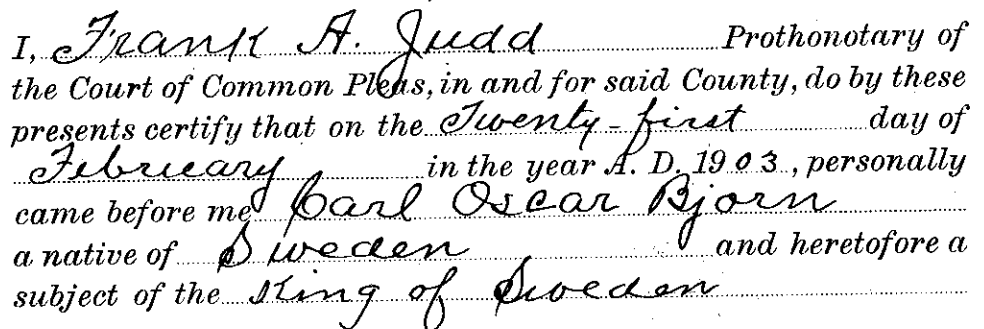 I, Frank A. Judd Prothonotary of
the Court of Common Pleas, in and for said County, do by these
presents certify that on the Twenty-first day of
February in the year A. D. 1903, personally
came before me Carl Oscar Bjorn
a native of Sweden and heretofore a
subject of the King of Sweden